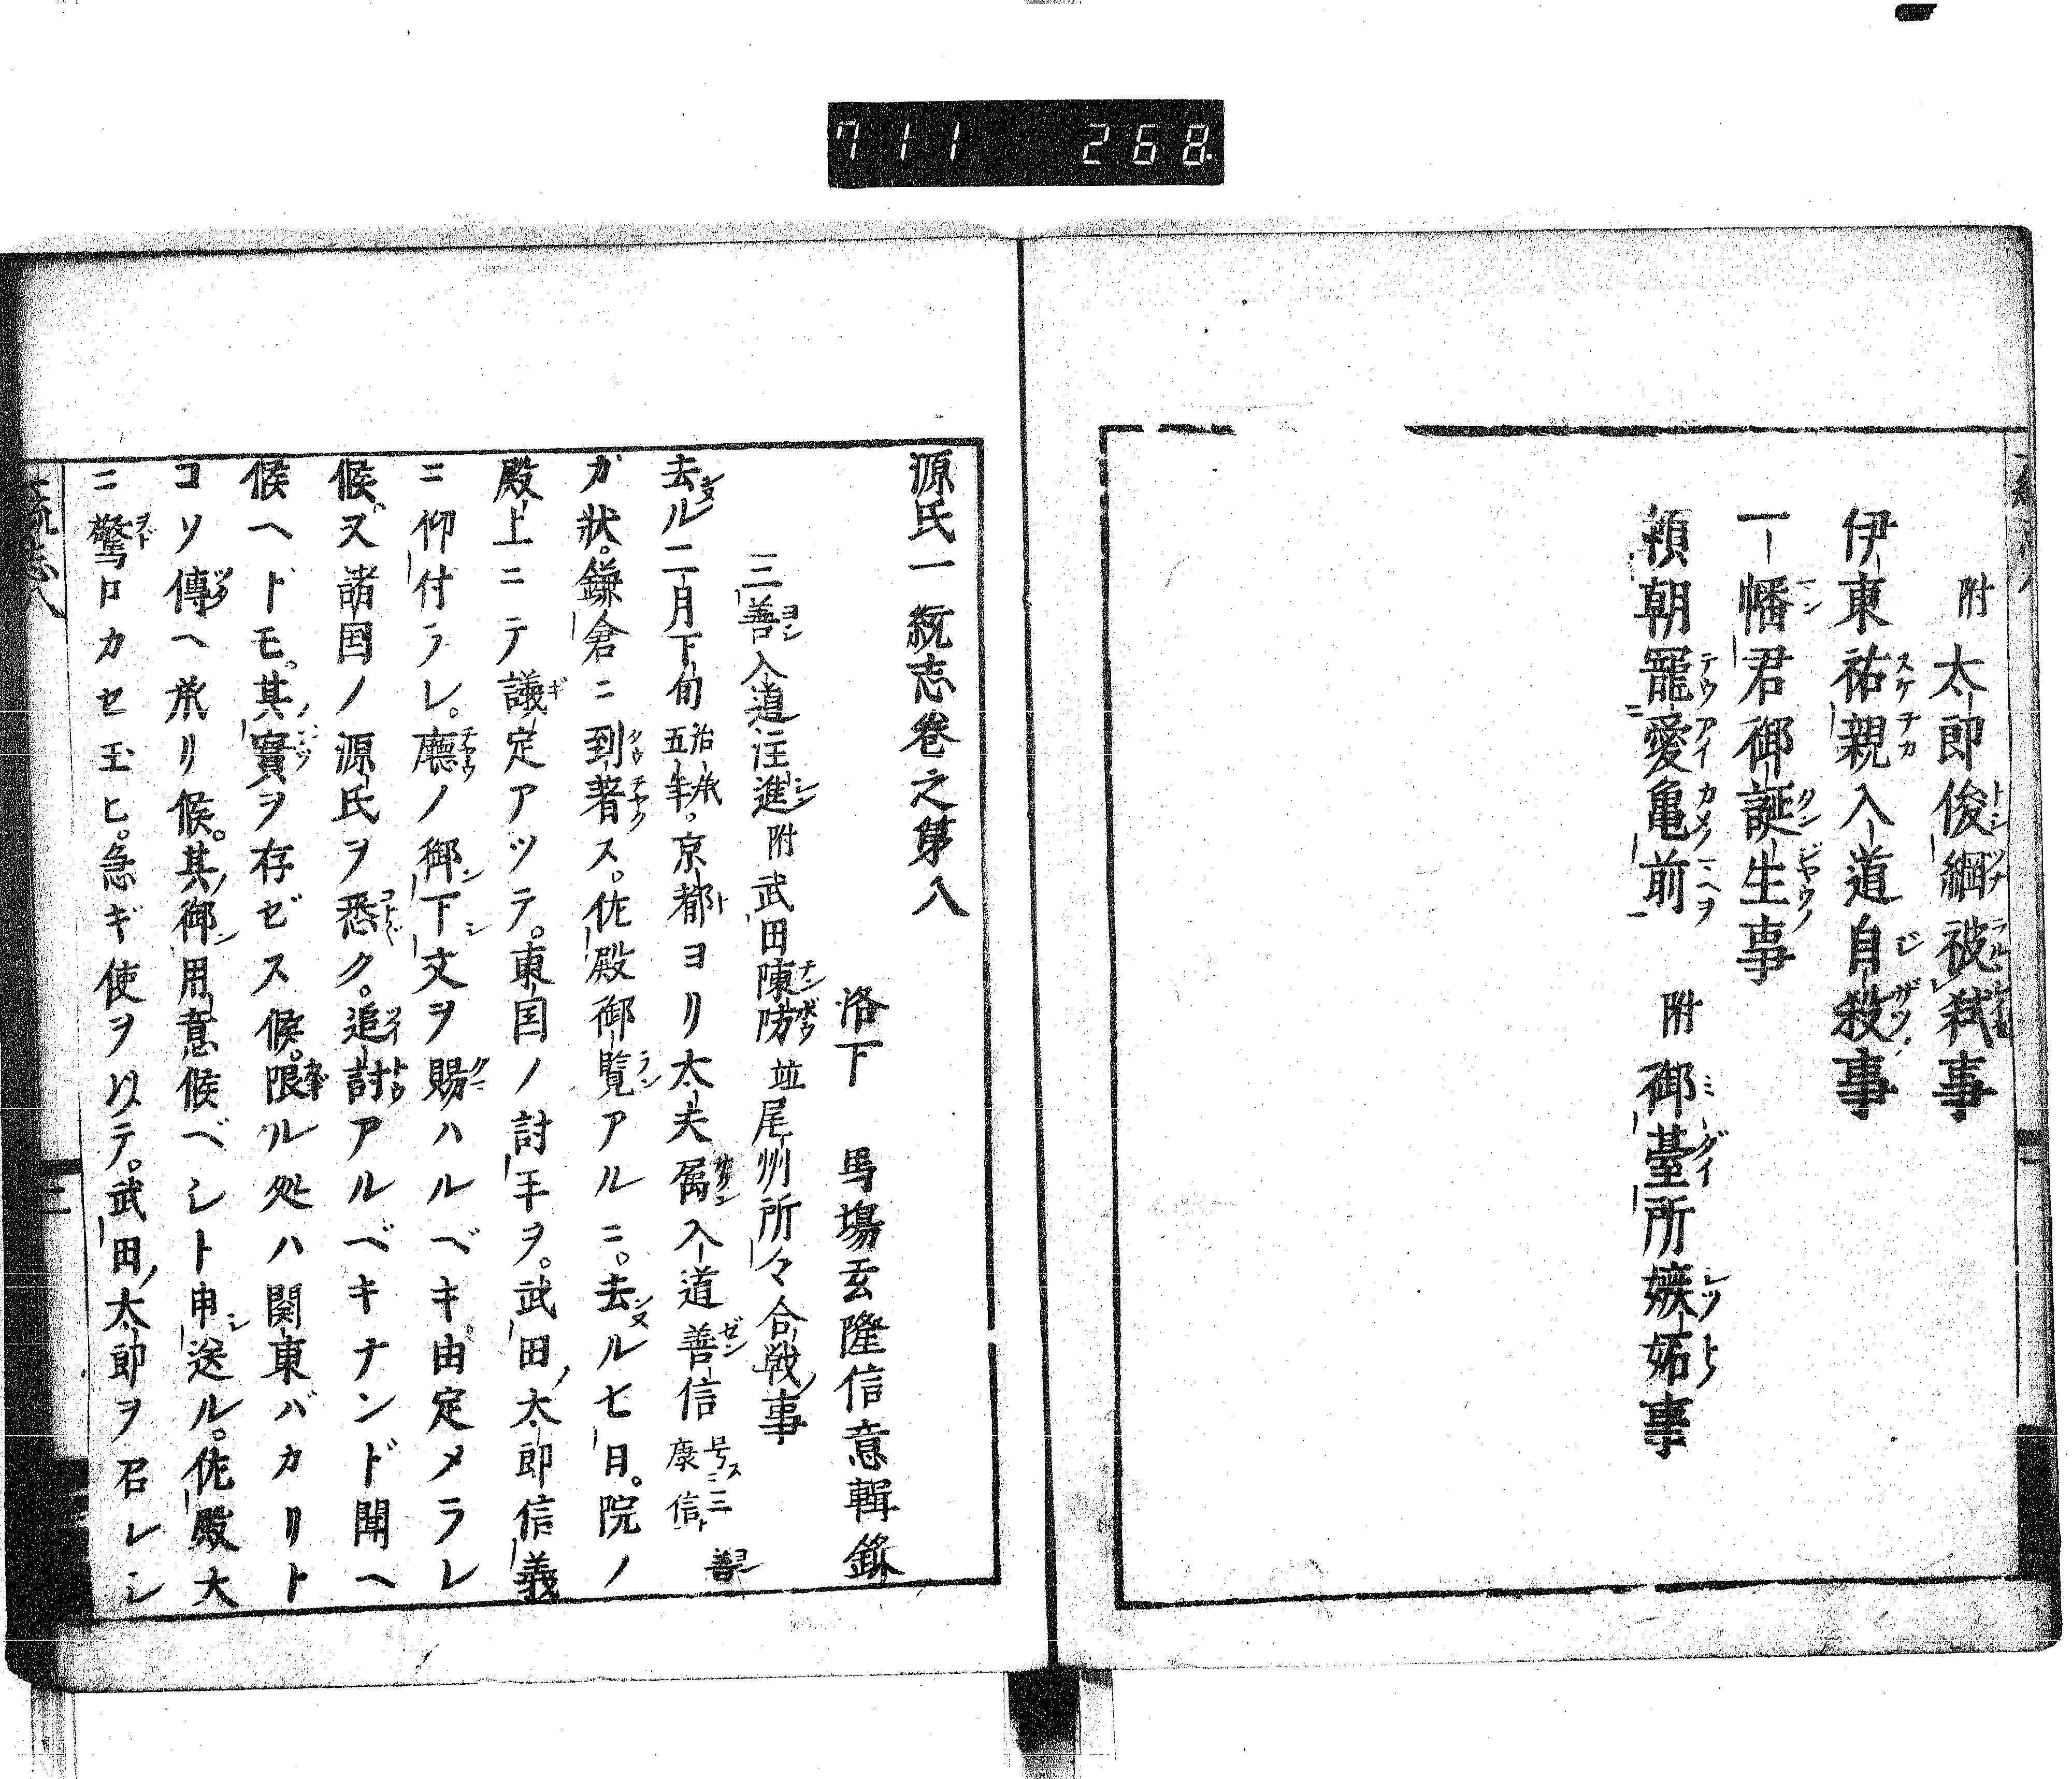 711 268.
附太郎俊綱被弑事
伊東祐親入道自殺事
一幡君御誕生事
頼朝寵愛亀前 附御臺所嫉妬事
源氏一統志巻之第八
洛下 馬場玄隆信意輯録
三善入道注進附武田陳防並尾州所々合戦事
去ル二月下旬治承五年。京都ヨリ太夫属入道善信三善康信ト号ス
ガ状。鎌倉ニ到著ス。佐殿御覧アルニ。去ル七日。院ノ
殿上ニテ議定アツテ。東国ノ討手ヲ。武田太郎信義
ニ仰付ラレ。廳ノ御下文ヲ賜ハルベキ由定メラレ
候。又諸国ノ源氏ヲ悉ク。追討アルベキナンド聞ヘ
候ヘドモ。其實ヲ存ゼス候。限ル処ハ関東バカリト
コソ傳ヘ承リ候。其御用意候ベシト申送ル。佐殿大
ニ驚ロカセ玉ヒ。急ギ使ヲ以テ。武田太郎ヲ召レシ
二